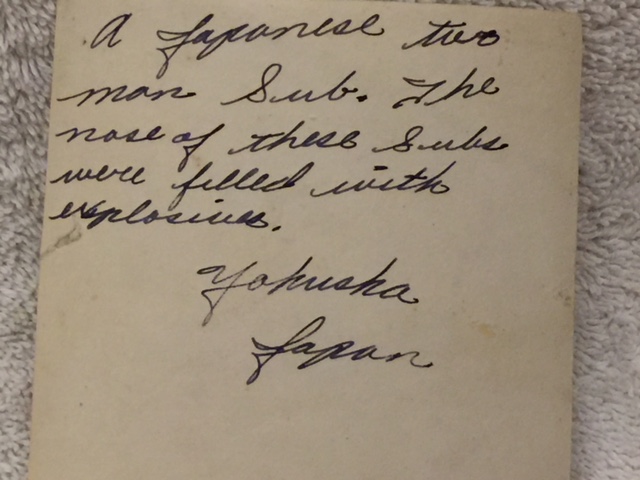 A Japanese two
man Sub. The
nose of these Subs
were filled with
explosives.
Yokuska
Japan